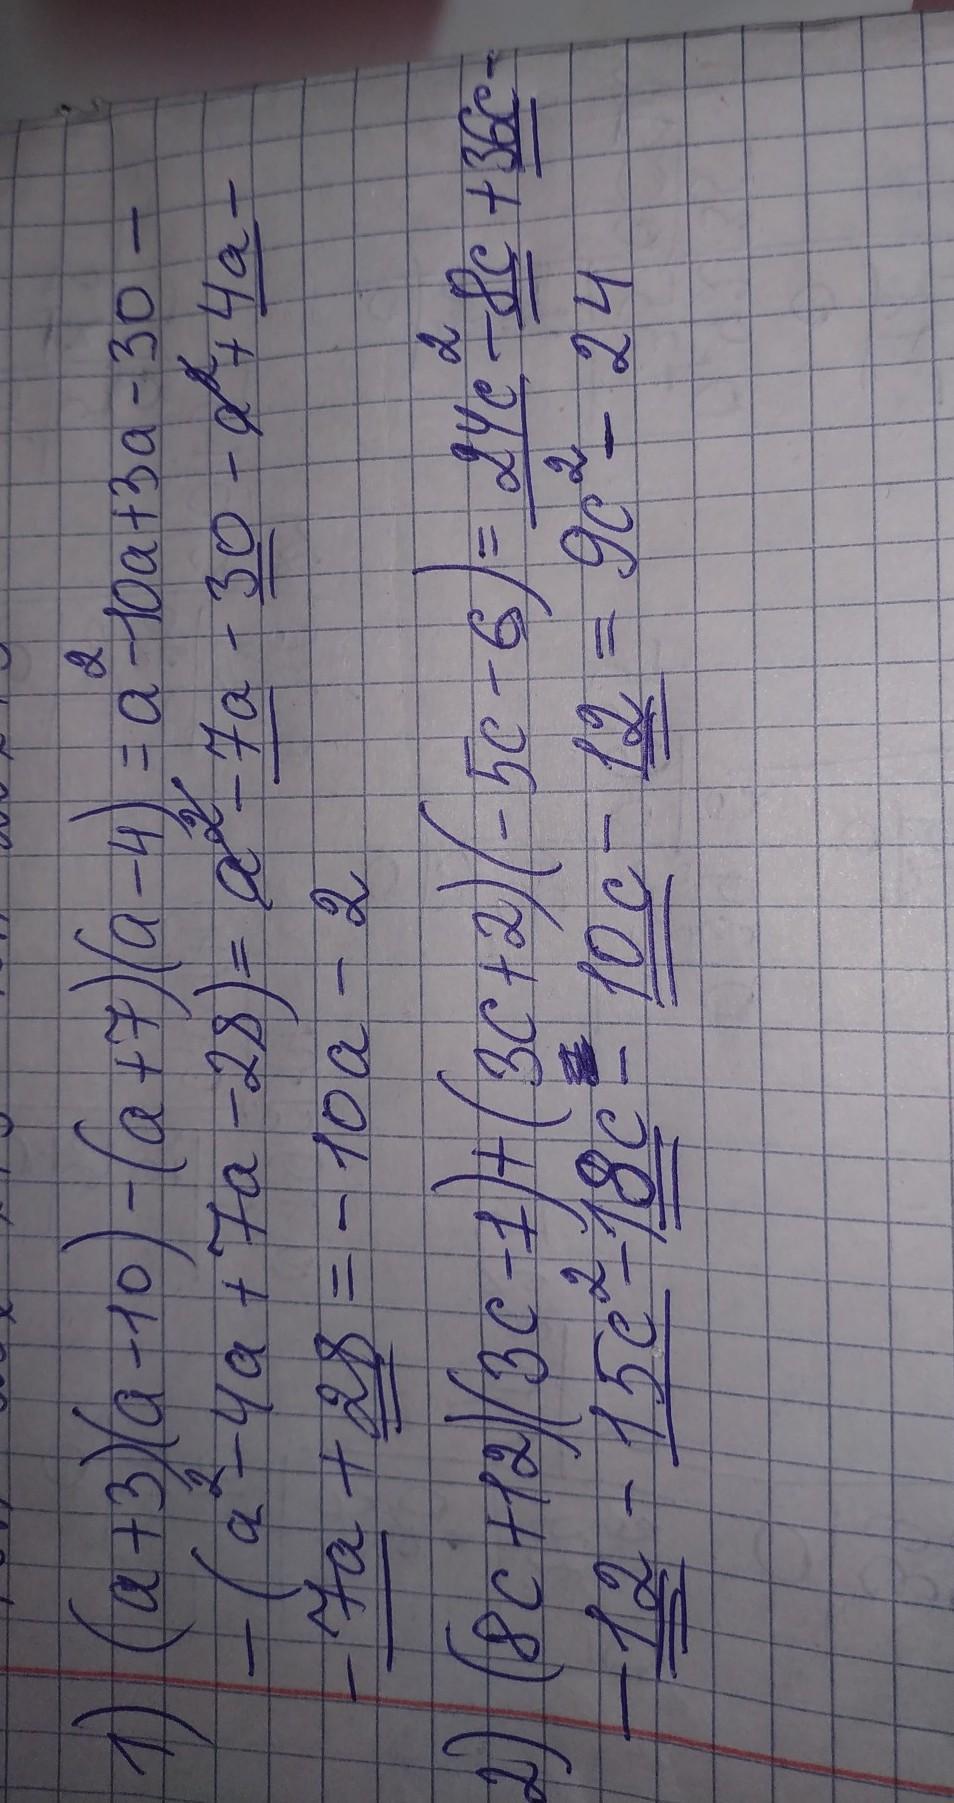 1) (a+3)(a-10)-(a+7)(a-4)=a²-10a+3a-30-
-(a²-4a+7a-28)=a²-7a-30-a²+4a-
-7a+28=-10a-2
2) (8c+12)(3c-1)+(3c+2)(-5c-6)=24c²-8c+36c-
-12-15c²-18c-10c-12=9c²-24